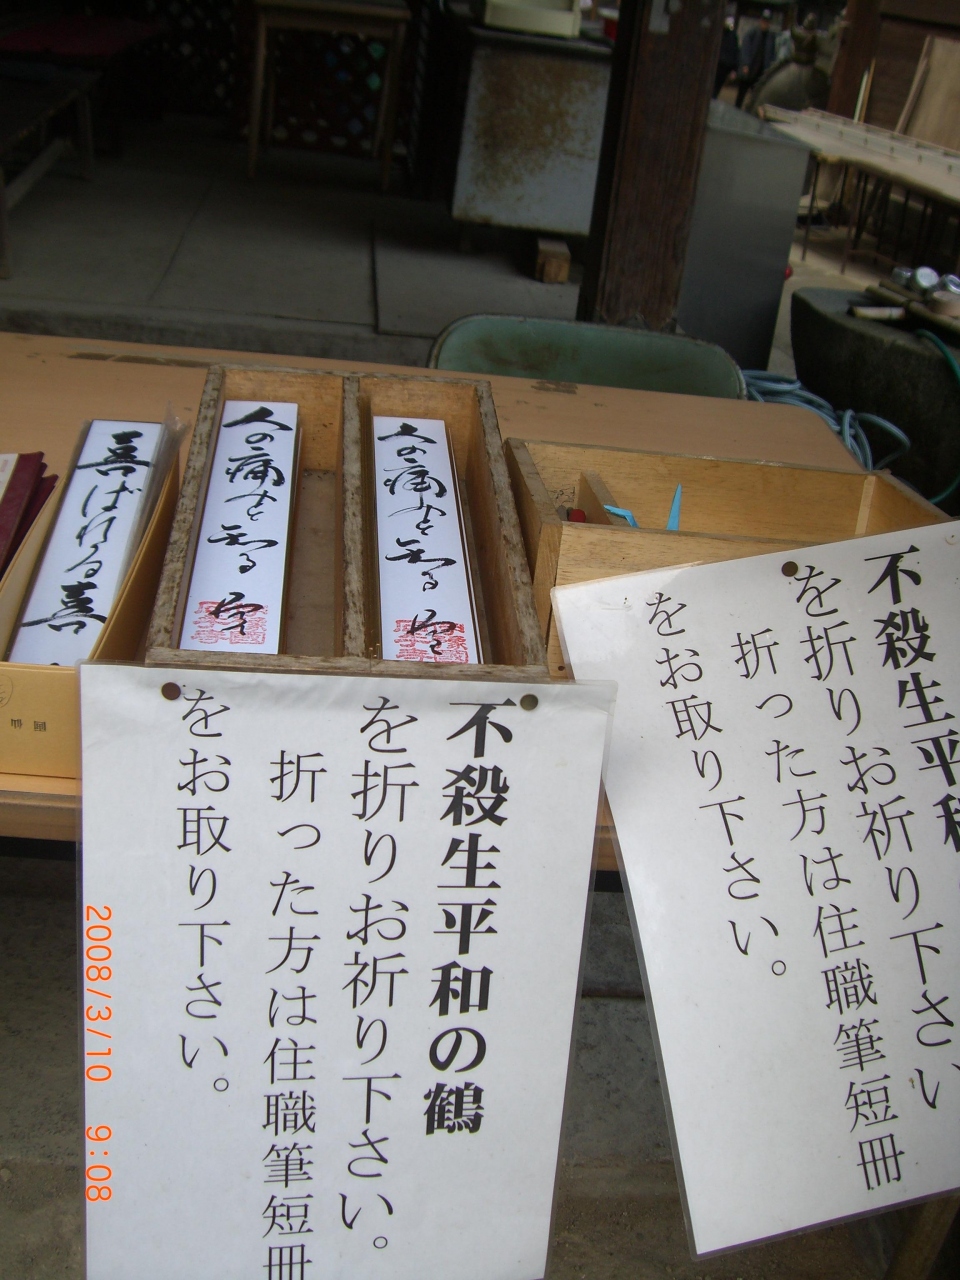 喜ばれる喜
人の痛みを知る
人の痛みを知る
不殺生平和の鶴
を折りお祈り下さい。
折った方は住職筆短冊
をお取り下さい。
不殺生平和
を折りお祈り下さい
折った方は住職筆短冊
をお取り下さい。
2008/3/10 9:08